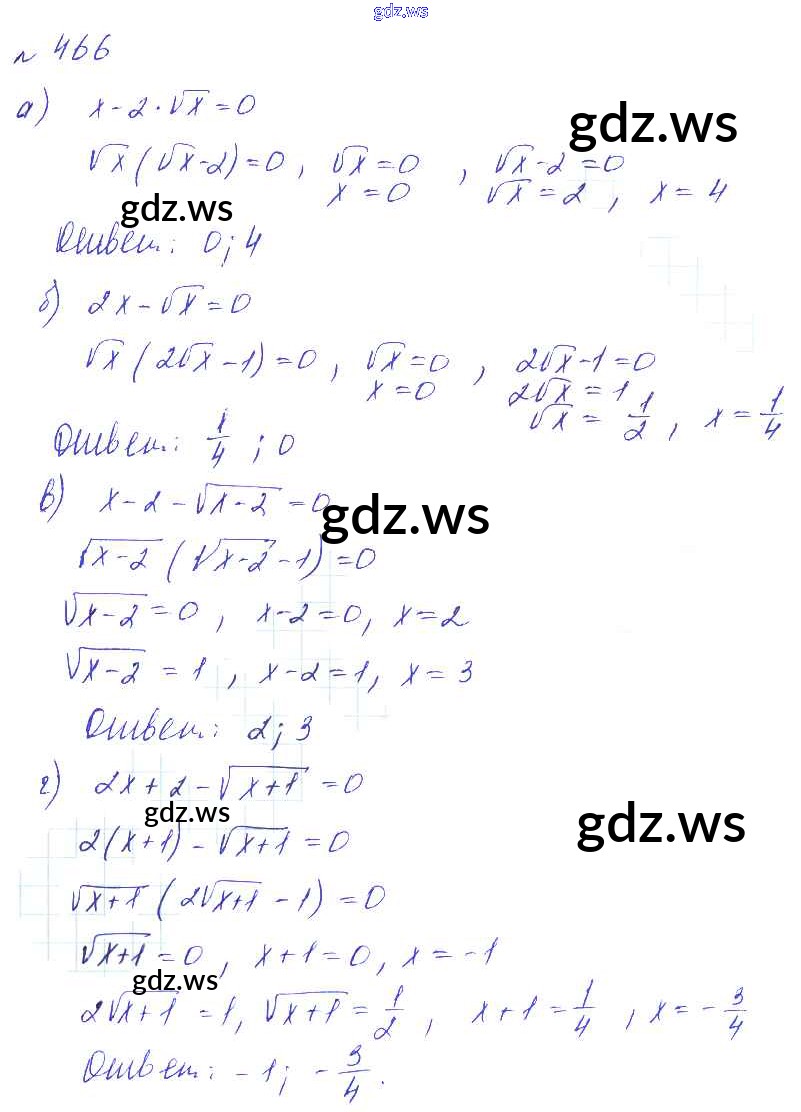 gdz.ws
№ 466
а) x - 2·√x = 0
gdz.ws
√x (√x - 2) = 0, √x = 0, √x - 2 = 0
x = 0 √x = 2, x = 4
gdz.ws
Ответ: 0; 4
б) 2x - √x = 0
√x (2√x - 1) = 0, √x = 0, 2√x - 1 = 0
x = 0 2√x = 1
√x = 1/2, x = 1/4
Ответ: 1/4; 0
в) x - 2 - √(x-2) = 0
gdz.ws
√(x-2) (√(x-2) - 1) = 0
√(x-2) = 0, x - 2 = 0, x = 2
√(x-2) = 1, x - 2 = 1, x = 3
Ответ: 2; 3
г) 2x + 2 - √(x+1) = 0
gdz.ws
gdz.ws
2(x+1) - √(x+1) = 0
√(x+1) (2√(x+1) - 1) = 0
√(x+1) = 0, x + 1 = 0, x = -1
gdz.ws
2√(x+1) = 1, √(x+1) = 1/2, x + 1 = 1/4, x = -3/4
Ответ: -1; -3/4.